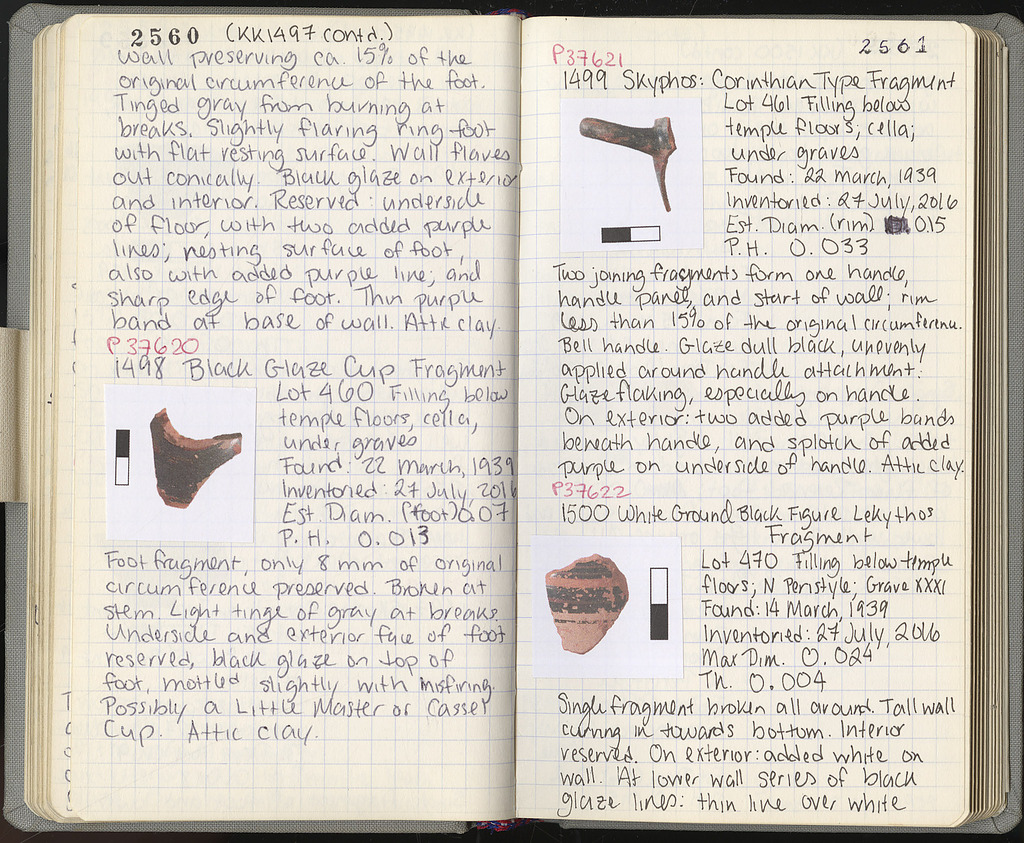 2560 (KK1497 contd.)
wall preserving ca. 15% of the
original circumference of the foot.
Tinged gray from burning at
breaks. Slightly flaring ring foot
with flat resting surface. Wall flares
out conically. Black glaze on exterior
and interior. Reserved: underside
of floor, with two added purple
lines; resting surface of foot,
also with added purple line; and
sharp edge of foot. Thin purple
band at base of wall. Attic clay.
P37620
1498 Black Glaze Cup Fragment
Lot 460 Filling below
temple floors, cella,
under graves
Found: 22 March, 1939
Inventoried: 27 July, 2016
Est. Diam. (foot) 0.07
P.H. 0.013
Foot fragment, only 8 mm of original
circumference preserved. Broken at
stem. Light tinge of gray at breaks.
Underside and exterior face of foot
reserved, black glaze on top of
foot, mottled slightly with misfiring.
Possibly a Little Master or Cassel
Cup. Attic clay.
2561
P37621
1499 Skyphos: Corinthian Type Fragment
Lot 461 Filling below
temple floors, cella;
under graves
Found: 22 March, 1939
Inventoried: 27 July, 2016
Est. Diam. (rim) 0.15
P.H. 0.033
Two joining fragments form one handle,
handle panel, and start of wall; rim
less than 15% of the original circumference.
Bell handle. Glaze dull black, unevenly
applied around handle attachment.
Glaze flaking, especially on handle.
On exterior: two added purple bands
beneath handle, and splotch of added
purple on underside of handle. Attic clay.
P37622
1500 White Ground Black Figure Lekythos
Fragment
Lot 470 Filling below temple
floors; N Peristyle; Grave XXXI
Found: 14 March, 1939
Inventoried: 27 July, 2016
Max Dim. 0.024
Th. 0.004
Single fragment broken all around. Tall wall
curving in towards bottom. Interior
reserved. On exterior: added white on
wall. At lower wall series of black
glaze lines: thin line over white